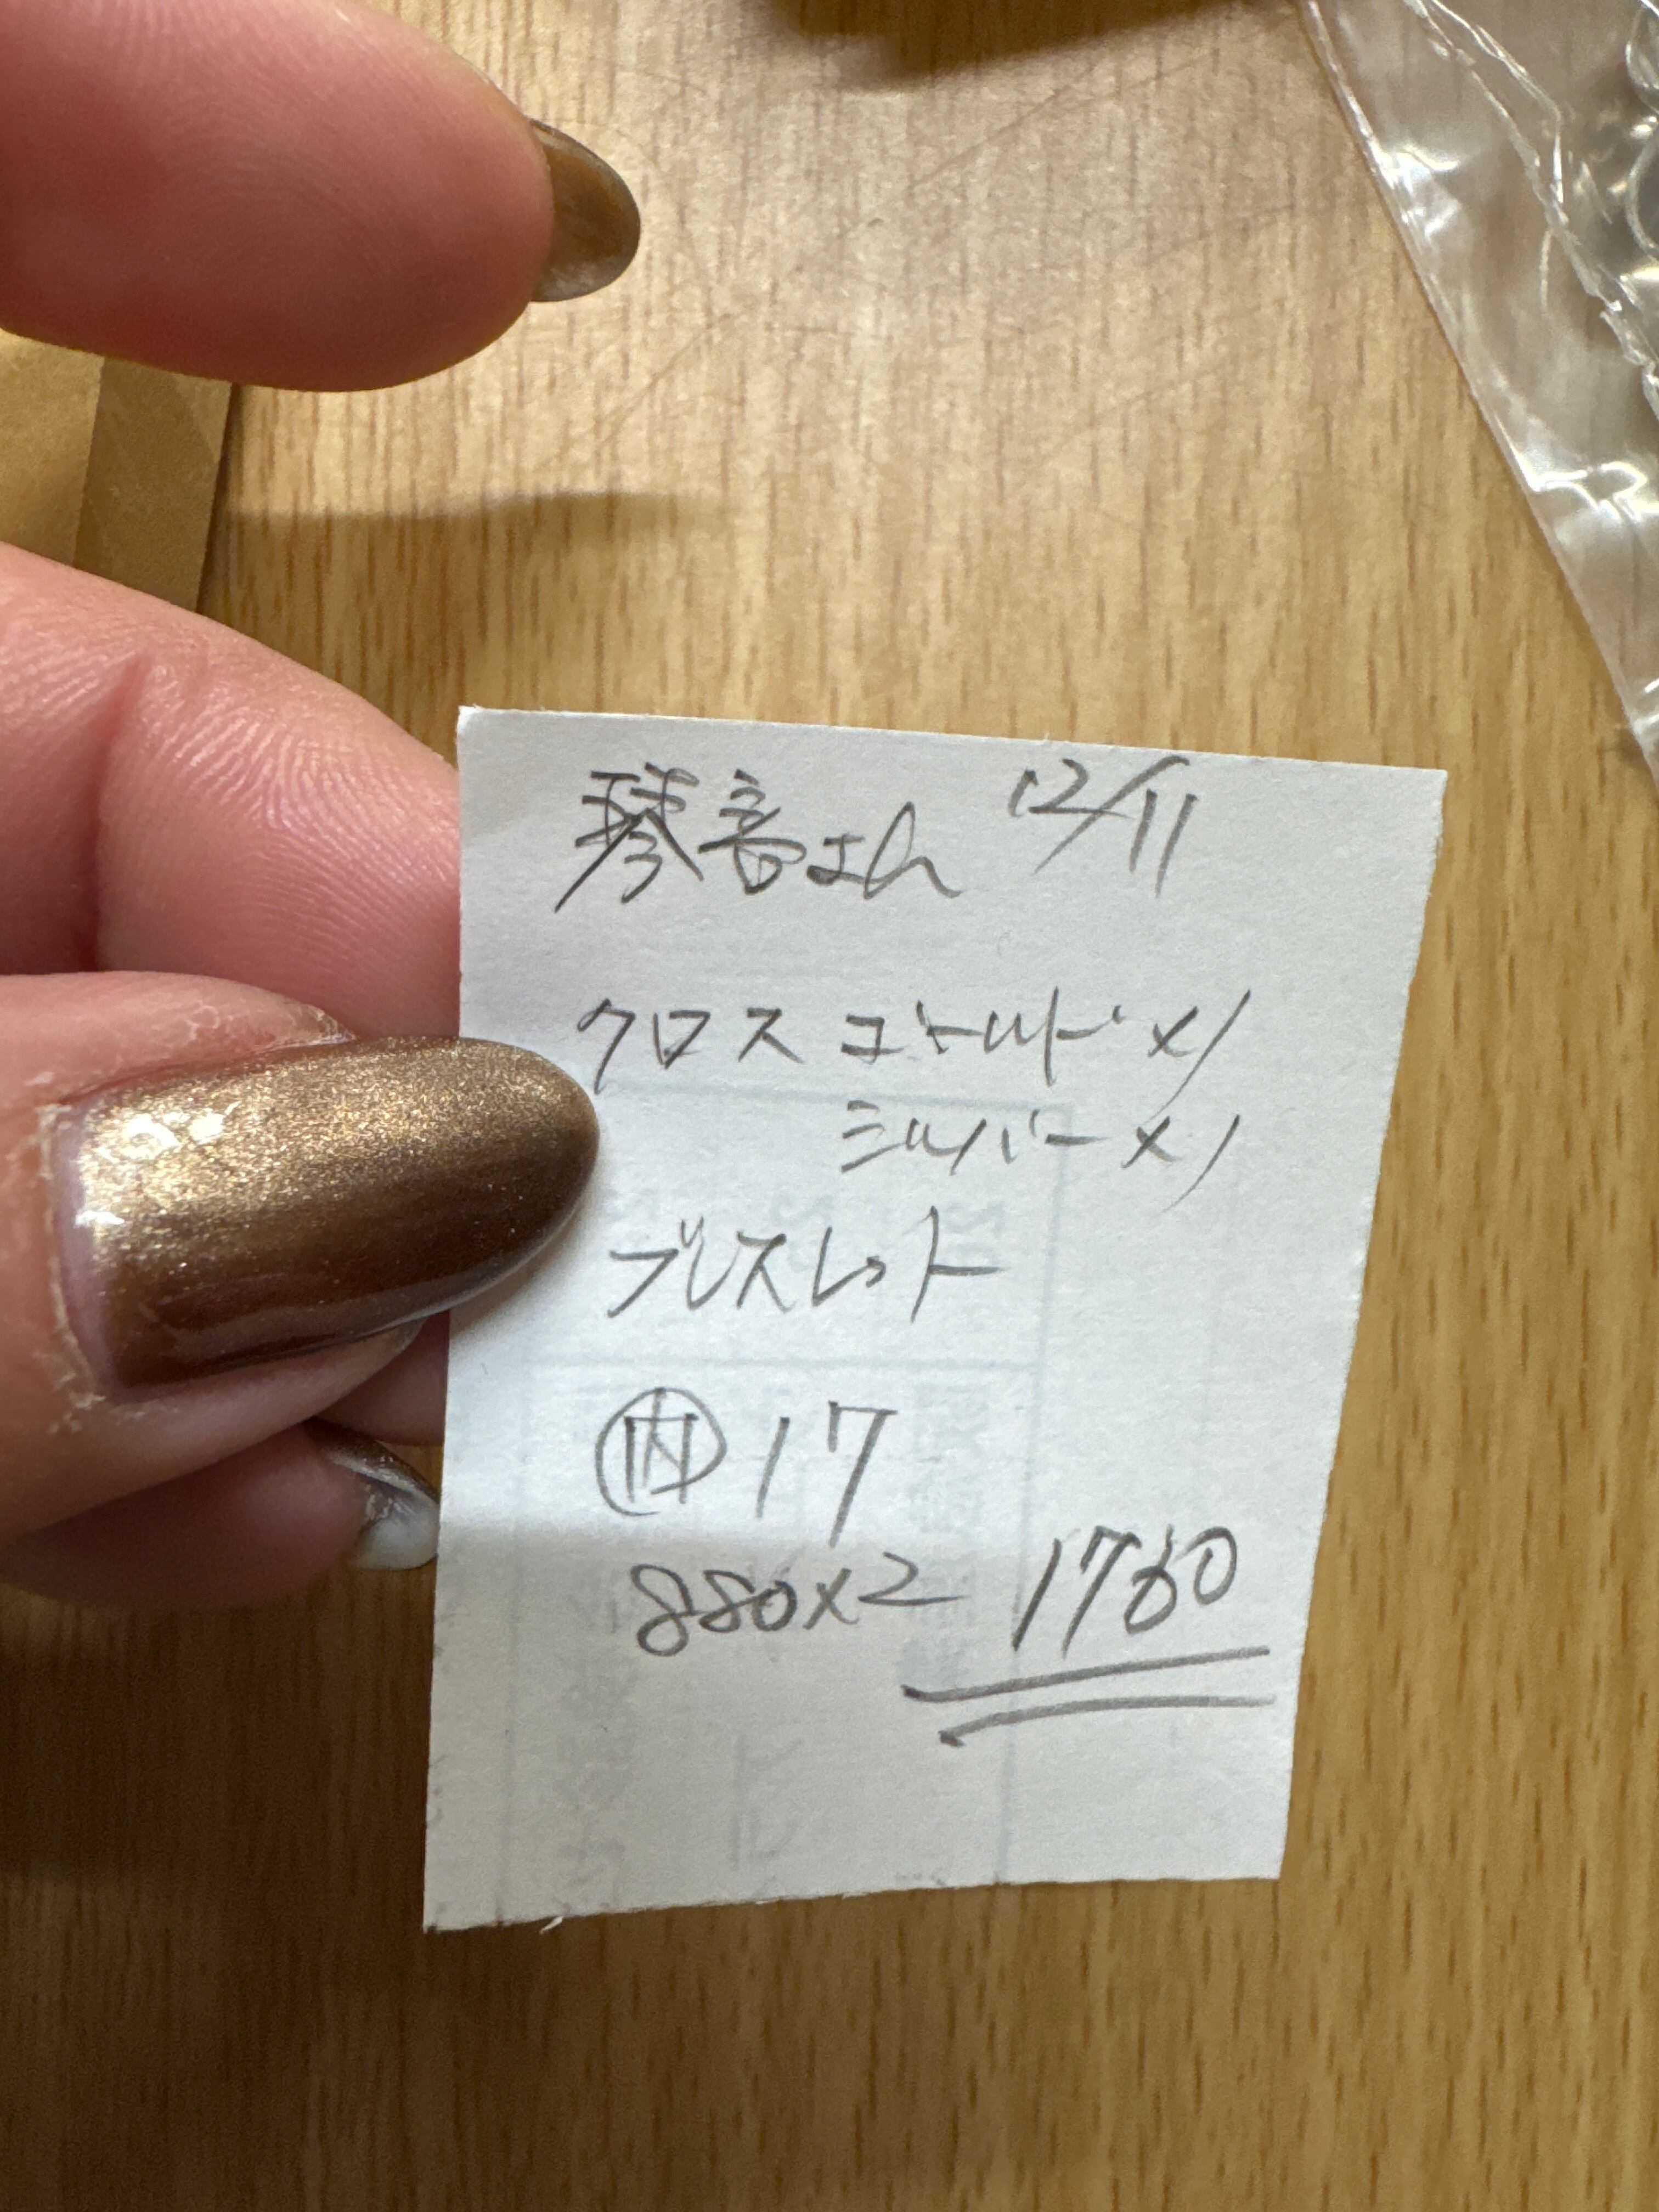 琴音さん 12/11
クロス ゴールド ×1
シルバー ×1
ブレスレット
内 17
880×2 1760